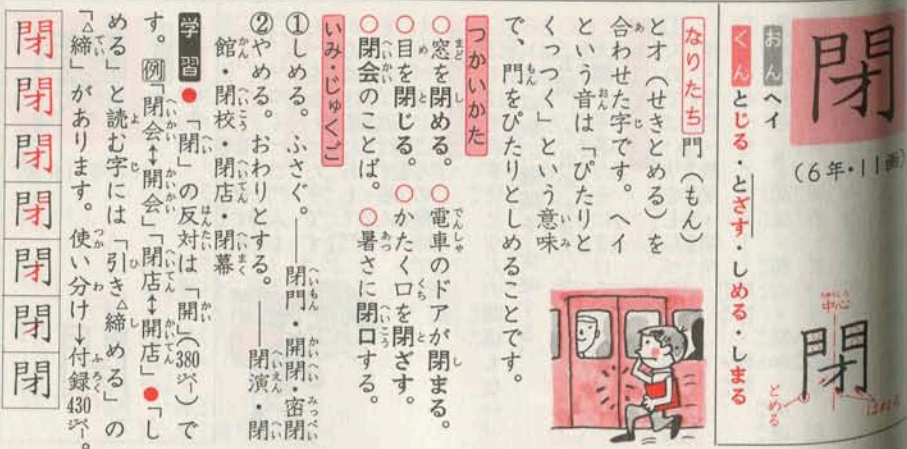 閉
(6年・11画)
おん ヘイ
くん とじる・とざす・しめる・しまる
中心
閉
とめる
はねる
なりたち 門(もん)
とオ(せきとめる)を
合わせた字です。ヘイ
という音は「ぴたりと
くっつく」という意味
で、門をぴたりとしめることです。
つかいかた
○窓を閉める。○電車のドアが閉まる。
○目を閉じる。○かたく口を閉ざす。
○閉会のことば。○暑さに閉口する。
いみ・じゅくご
①しめる。ふさぐ。——閉門・開閉・密閉
②やめる。おわりとする。——閉演・閉
館・閉校・閉店・閉幕
学習 ●「閉」の反対は「開」(380ページ)で
す。例「閉会↔開会」「閉店↔開店」●「し
める」と読む字には「引き△締める」の
「△締」があります。使い分け→付録430ページ。
閉 閉 閉 閉 閉 閉 閉